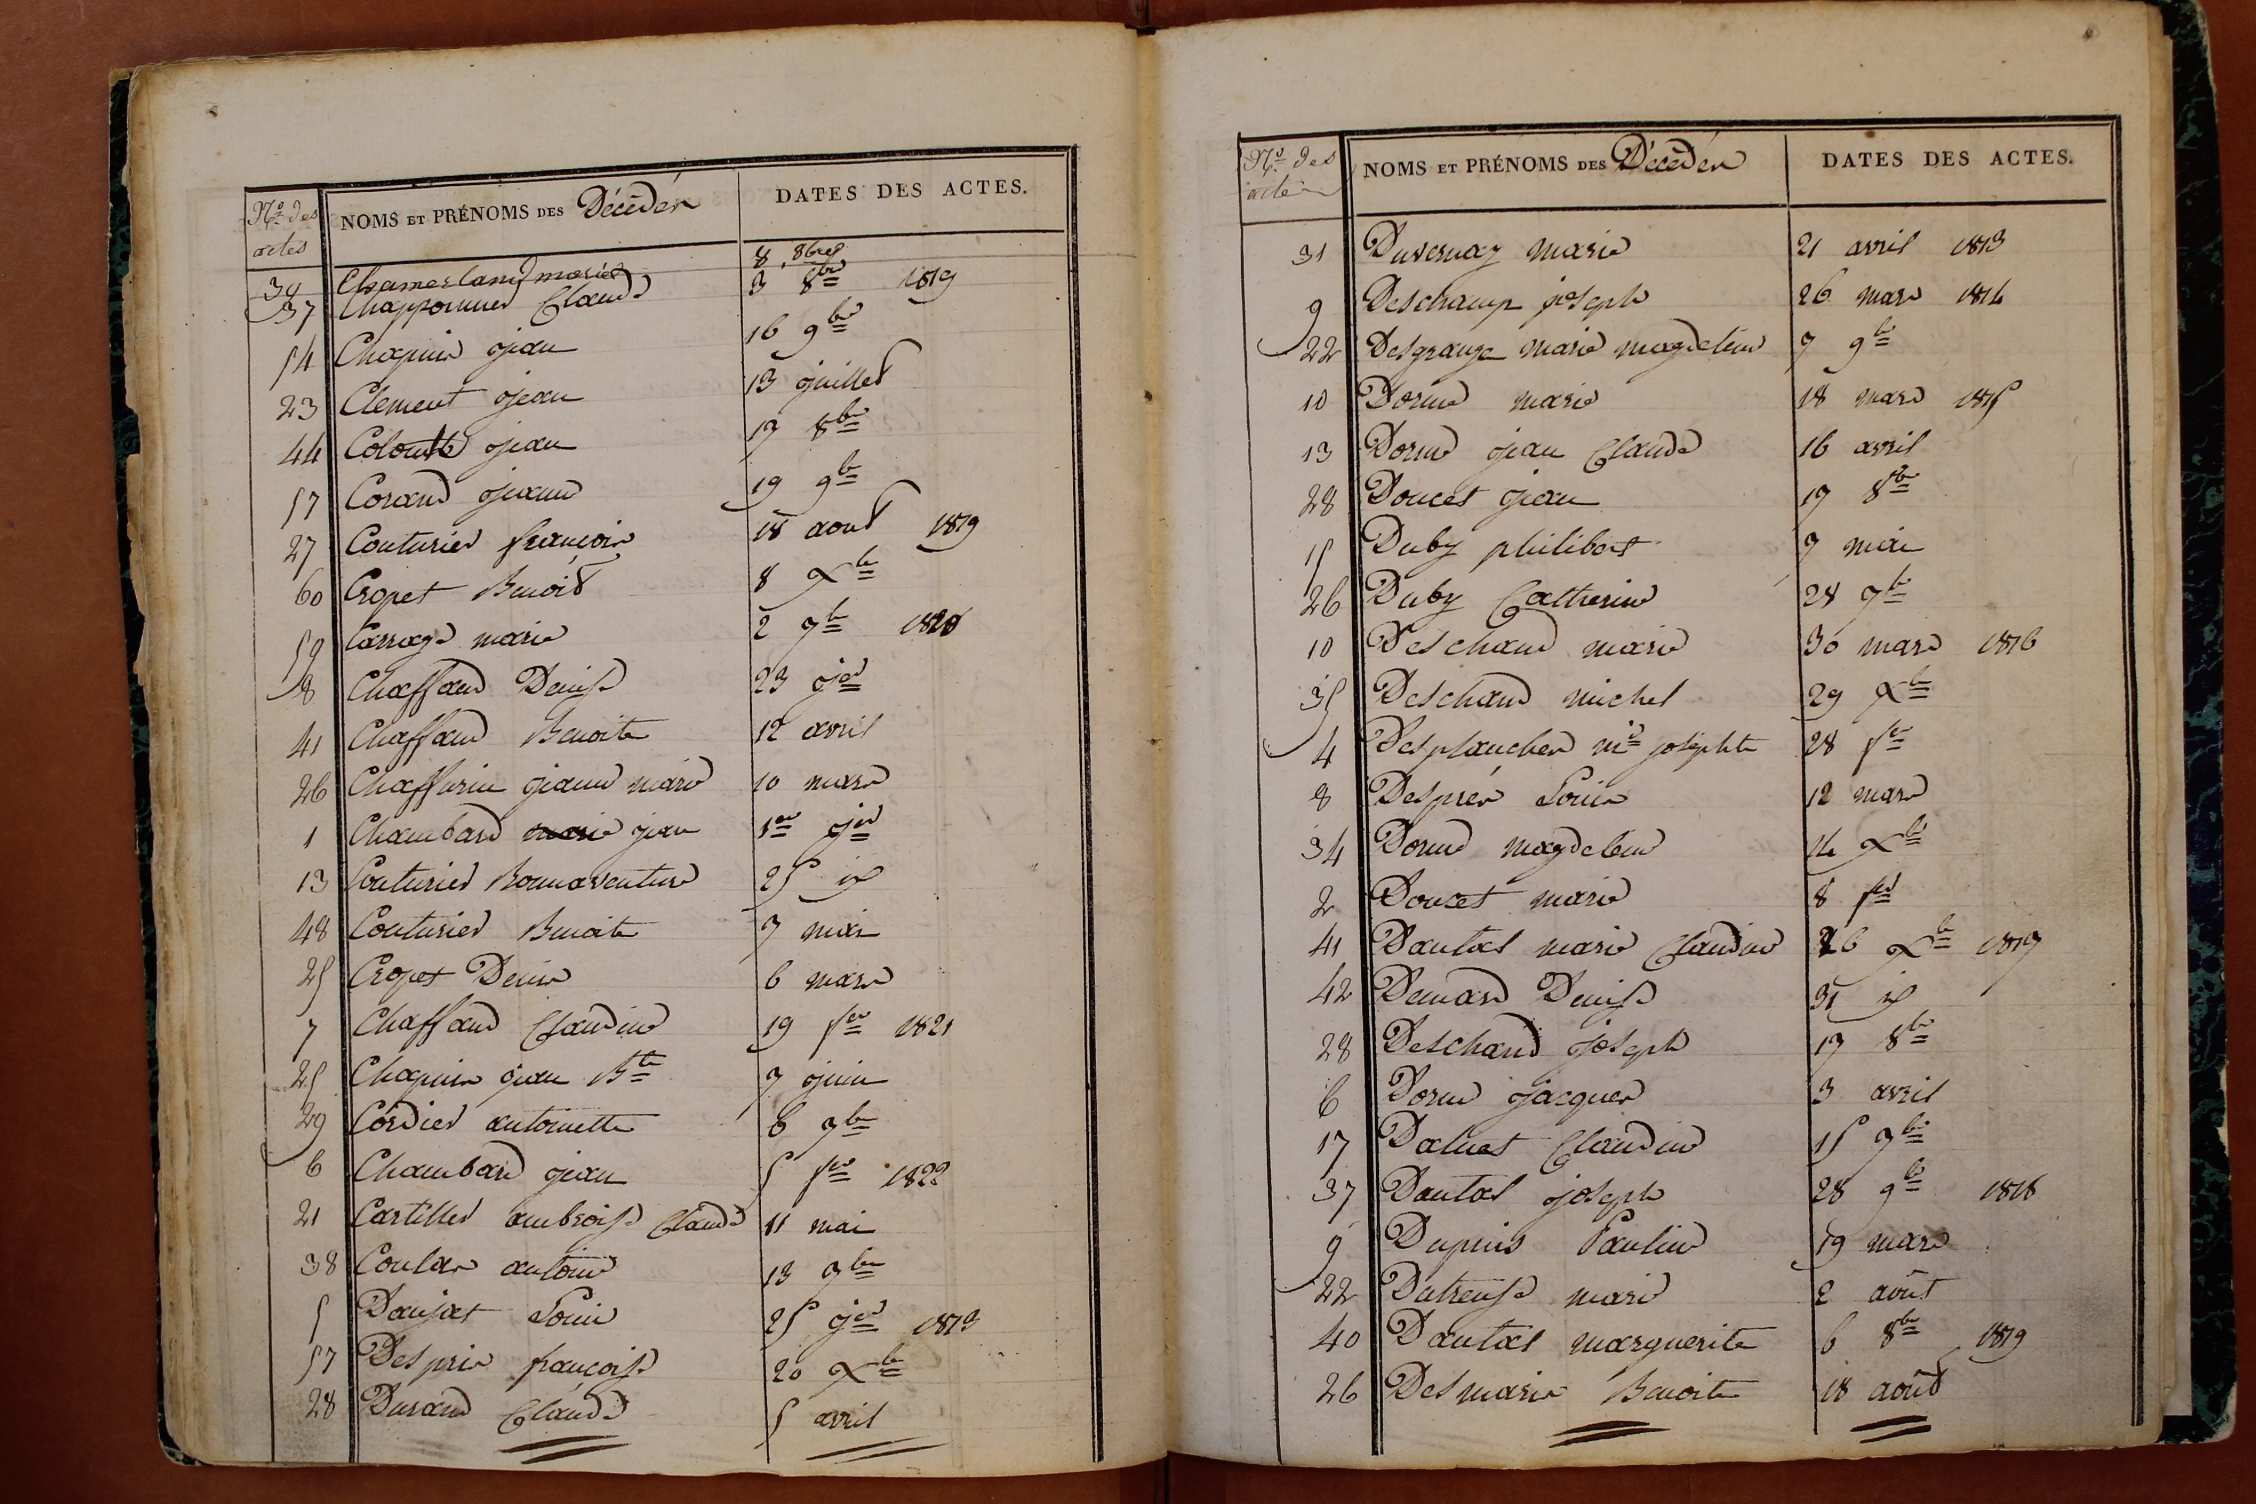 Nos des actes NOMS ET PRÉNOMS DES Décédés DATES DES ACTES.
39 Chamerland marie 8 8bre
37 Chapponnier Claude 3 8bre 1819
54 Chapuis jean 16 9bre
23 Clement jean 13 juillet
44 Colomb jean 17 8bre
57 Corand jeanne 19 9bre
27 Couturier françois 18 aout 1819
60 Cropet Benoit 8 Xbre
59 Carrage marie 2 7bre 1820
8 Chaffaud Denise 23 jer
41 Chaffaud Benoite 12 avril
26 Chaffurin jeanne marie 10 mars
1 Chambard jean 1er jer
13 Couturier Bonnaventure 25 id
48 Couturier Benoite 7 mai
25 Cropet Denis 6 mars
7 Chaffaud Claudine 19 fer 1821
25 Chapuis jean Bte 7 juin
29 Cordier antoinette 6 7bre
6 Chambard jean 5 fer 1822
21 Cartillet ambroise Claude 11 mai
38 Coulas antoine 13 7bre
5 Daujat Louis 25 jer 1813
57 Despris françoise 20 Xbre
28 Durand Claude 5 avril
Nos des actes NOMS ET PRÉNOMS DES Décédés DATES DES ACTES.
31 Duvernay marie 21 avril 1813
9 Deschamp joseph 26 mars 1814
22 Desgrange marie magdeleine 7 9bre
10 Dorme marie 18 mars 1815
13 Dorme jean Claude 16 avril
28 Doucet jean 17 8bre
15 Duby philibert 7 mai
26 Duby Catherine 28 7bre
10 Deschaud marie 30 mars 1816
35 Deschaud michel 29 Xbre
4 Desplanches mie josephte 28 fer
8 Després Louis 12 mars
34 Dorme magdeleine 14 Xbre
2 Doucet marie 8 fer
41 Dautal marie Claudine 26 Xbre 1819
42 Demard Denise 31 id
28 Deschaud joseph 17 8bre
6 Dorme jacques 3 avril
17 Daluet Claudine 15 7bre
37 Dautal joseph 28 9bre 1818
9 Dupuis Pauline 19 mars
22 Dutreuse marie 2 août
40 Dautal marguerite 6 8bre 1819
26 Desmaris Benoite 18 août